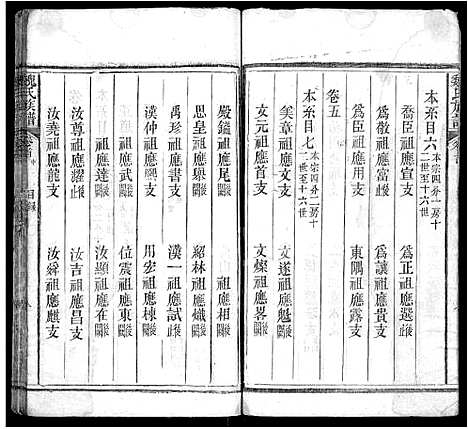 魏氏族譜
本系目六 本宗四分一房十二世至十六世
喬臣祖應宣支 爲正祖應選後
爲徵祖應富後 爲讓祖應貴支
爲臣祖應用支 東隅祖應露支
卷五
本系目七 本宗四分二房十二世至十六世
友元祖應首支 文燦祖應畧支
美章祖應文後 文遂祖應魁後
嚴鑑祖應尾 祖應相
思皇祖應舉 紹林祖應熾
禹珍祖應書支 漢一祖應試後
漢仲祖應熙支 用宏祖應棟
祖應武 位震祖應東
祖應達 汝顯祖應在
汝尊祖應耀後 汝吉祖應昌支
汝堯祖應龍支 汝舜祖應麒支
魏氏族譜 卷首 目錄 八